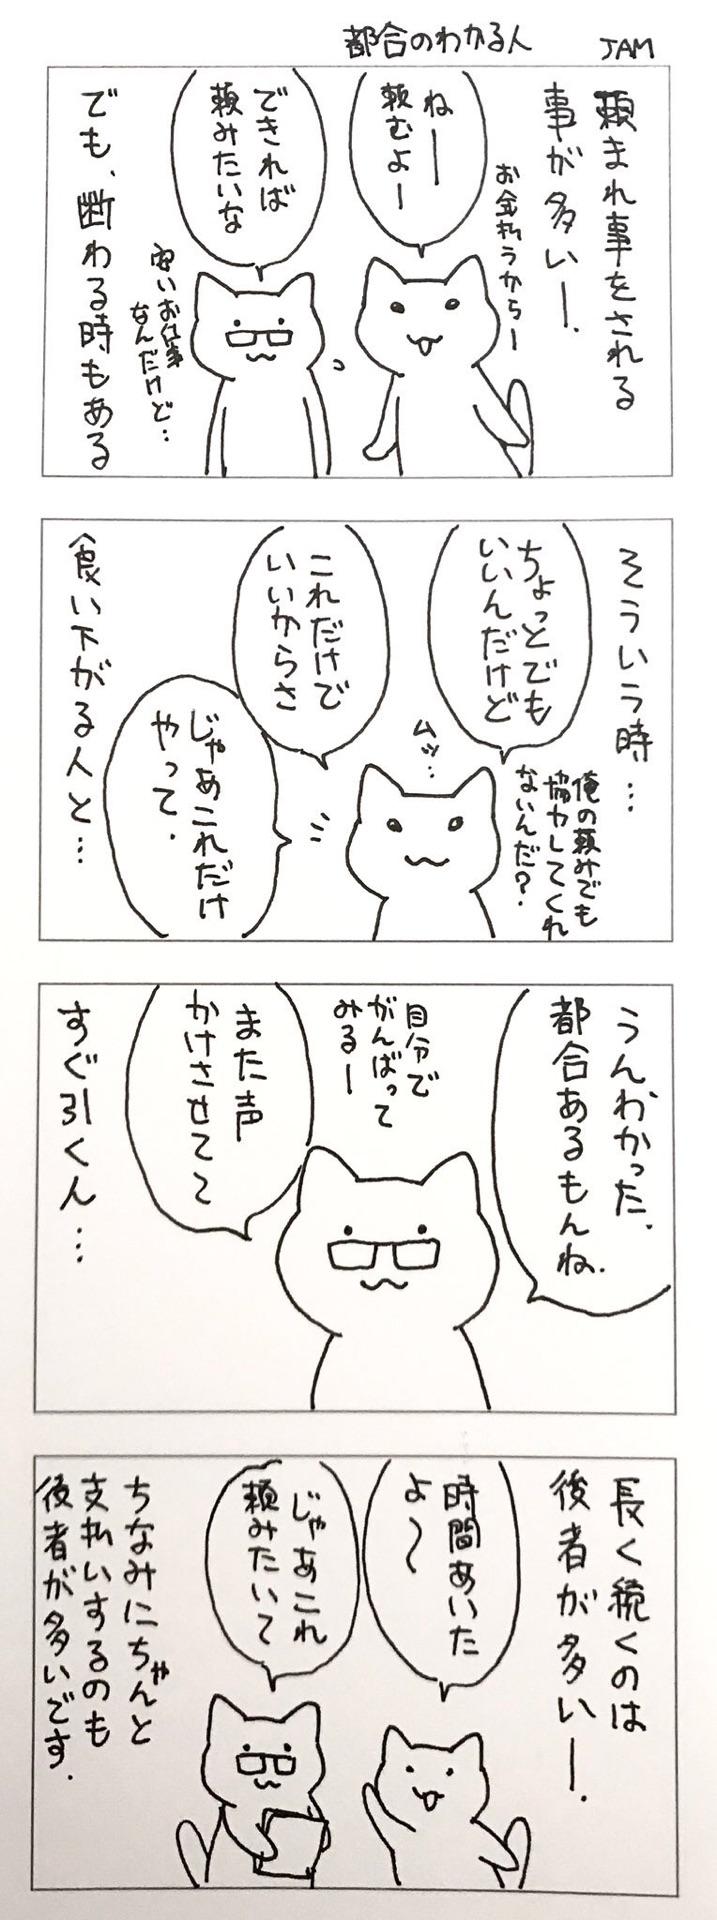 都合のわかる人
JAM
頼まれ事をされる
事が多いー.
お金払うからー
ねー
頼むよー
できれば
頼みたいな
安いお仕事
なんだけど…
でも、断わる時もある
そういう時…
ちょっとでも
いいんだけど
俺の頼みでも
協力してくれ
ないんだ?
ムッ…
これだけで
いいからさ
じゃあこれだけ
やって.
食い下がる人と…
うんわかった.
都合あるもんね.
自分で
がんばって
みるー
また声
かけさせて〜
すぐ引く人…
長く続くのは
後者が多いー.
時間あいた
よ〜
じゃあこれ
頼みたいて
ちなみにちゃんと
支払いするのも
後者が多いです.